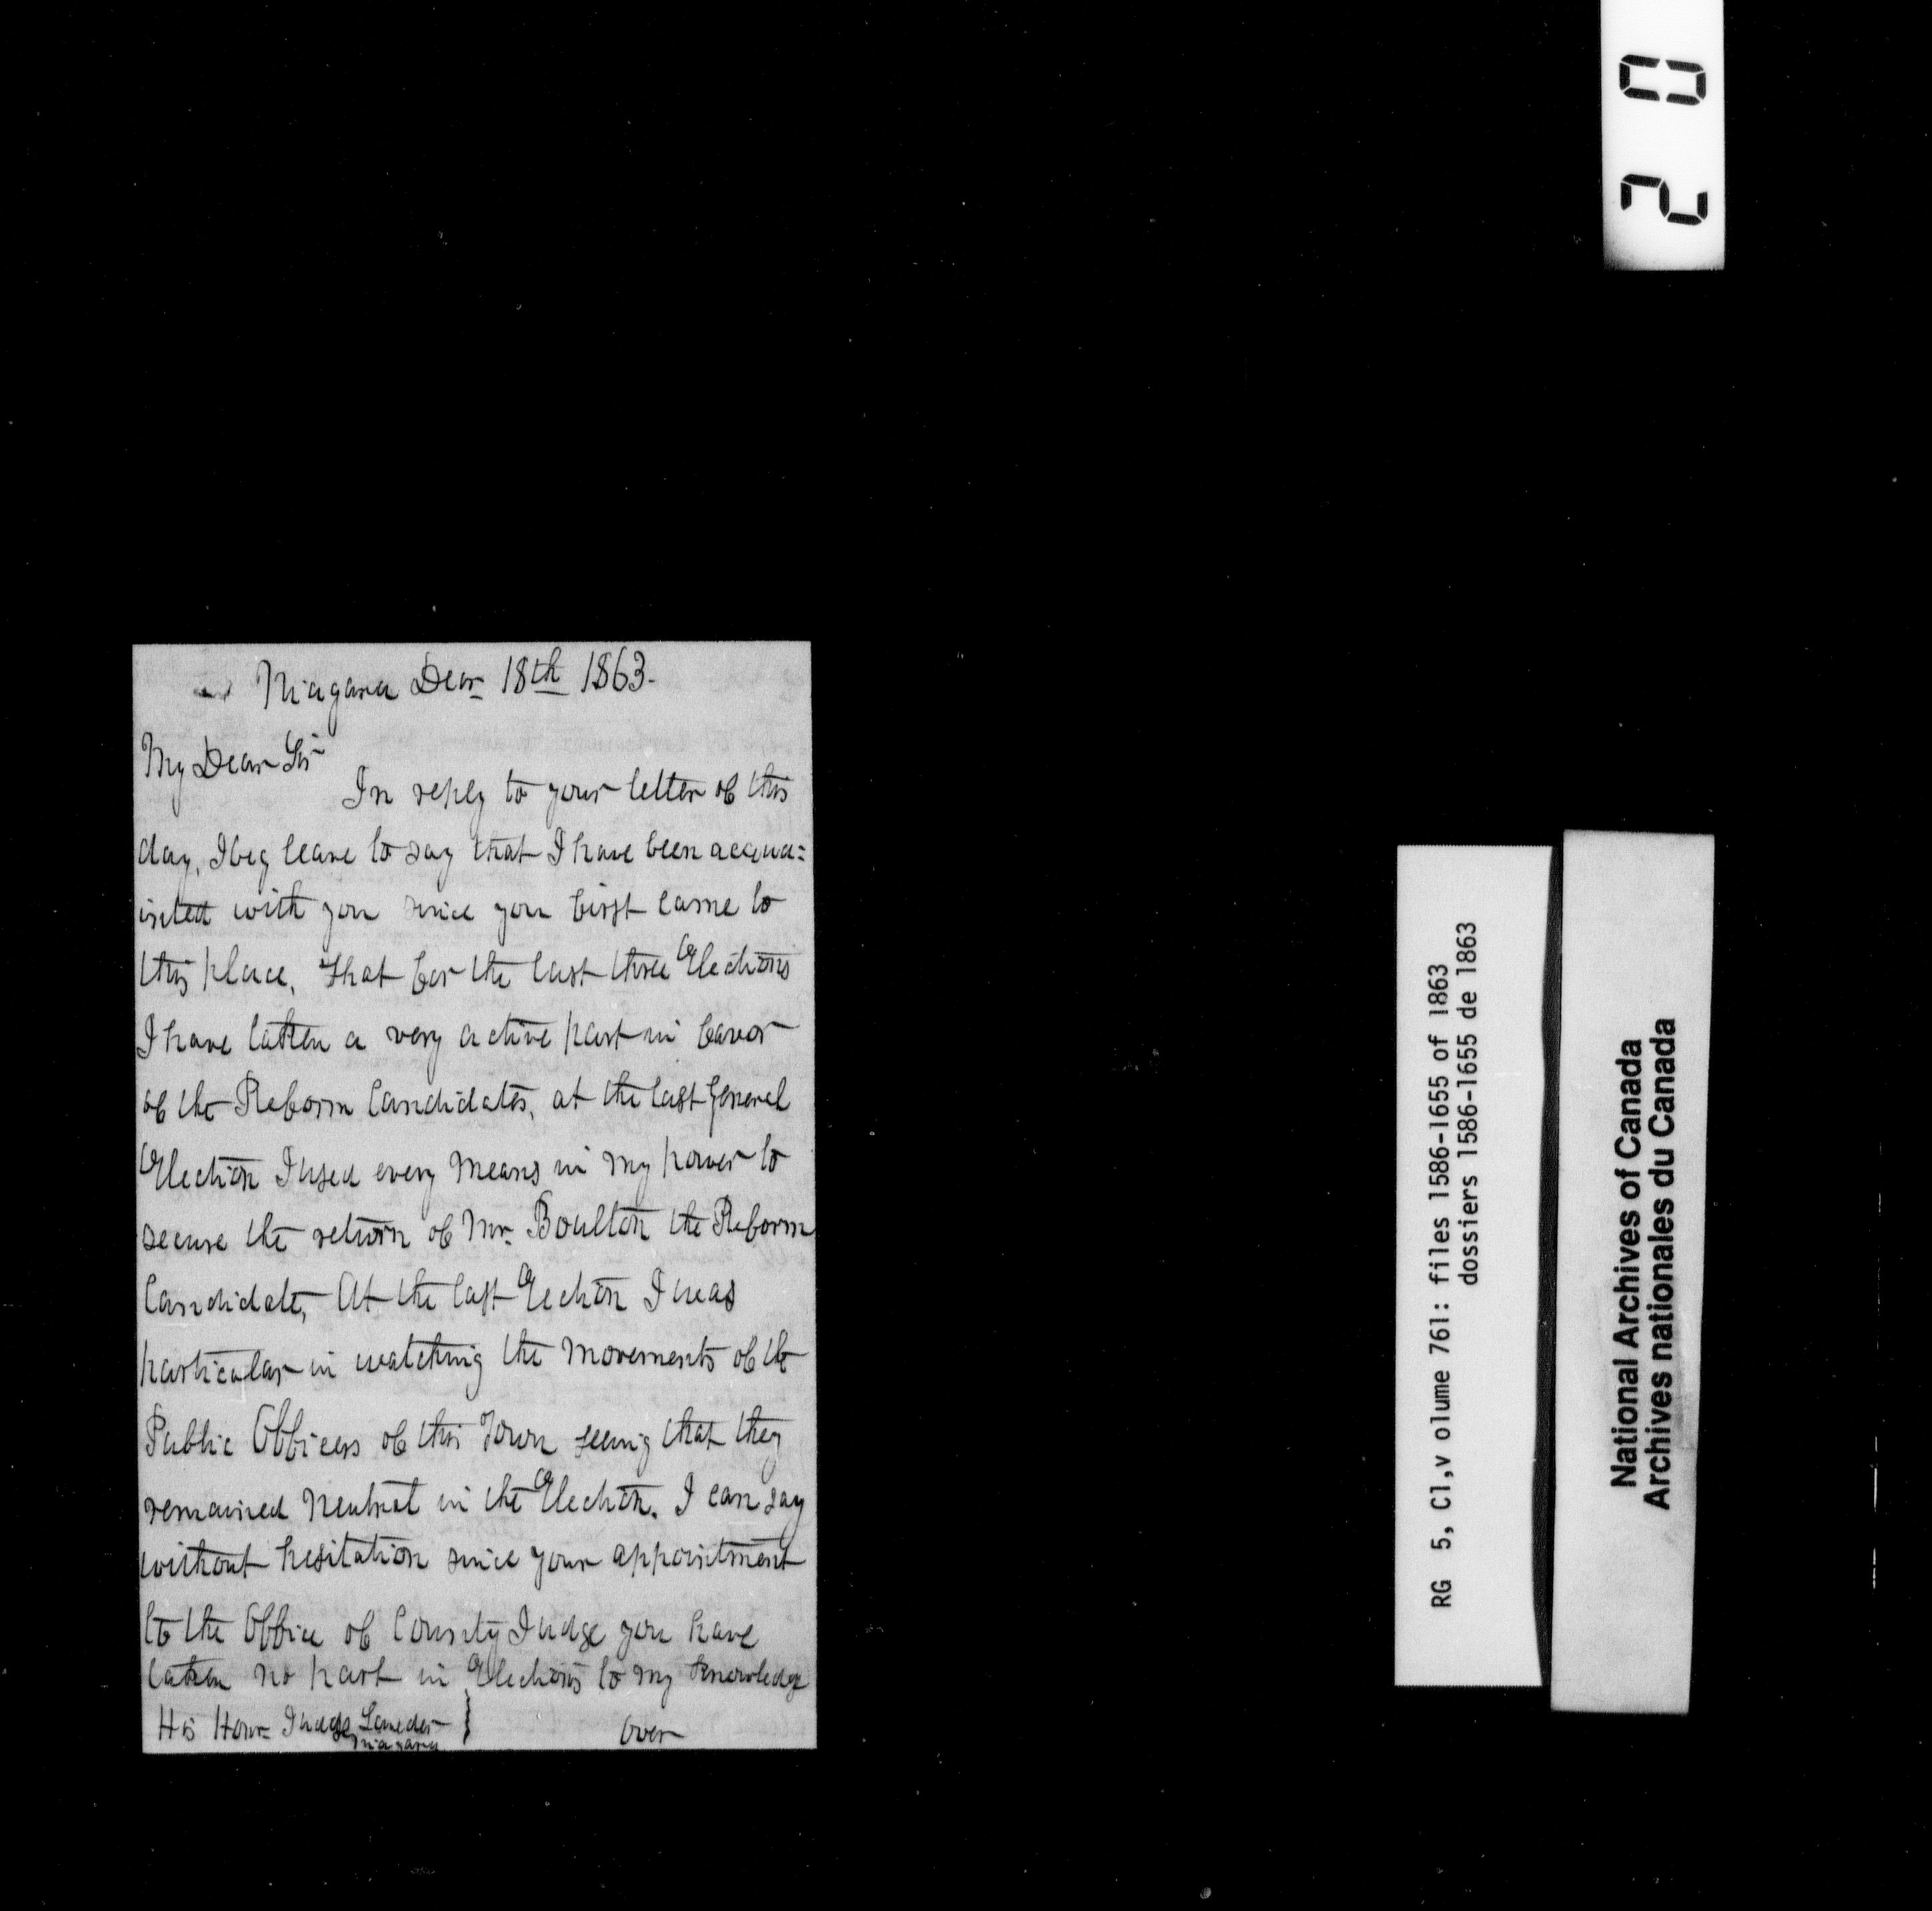 Niagara Decr 18th 1863.
My Dear Sir
In reply to your letter of this
day, I beg leave to say that I have been acqua=
inted with you since you first came to
this place, that for the last three Elections
I have taken a very active part in favor
of the Reform Candidates, at the last General
Election I used every means in my power to
secure the return of Mr. Boulton the Reform
Candidate, At the last Election I was
particular in watching the movements of the
Public Officers of this Town seeing that they
remained Neutral in the Election. I can say
without hesitation since your appointment
to the Office of County Judge you have
taken no part in Elections to my knowledge
His Honr Judge Lauder
Niagara
over
20
RG 5, Cl,v olume 761: files 1586-1655 of 1863
dossiers 1586-1655 de 1863
National Archives of Canada
Archives nationales du Canada